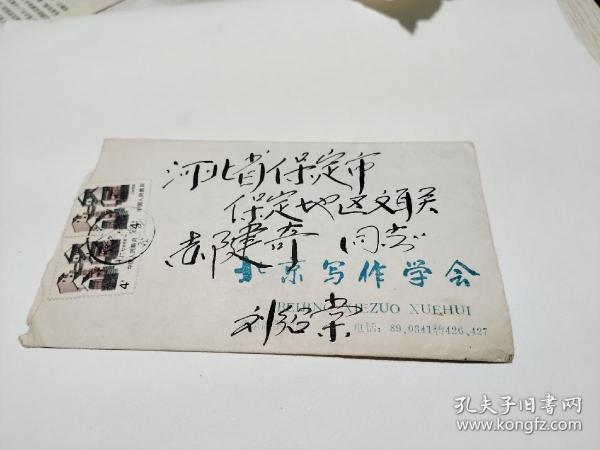 河北省保定市
保定地区文联
郝建奇 同志
北京写作学会
BEIJING XIEZUO XUEHUI
刘绍棠
电话：89.0341转426.427
4分
4分
孔夫子旧书网
www.kongfz.com